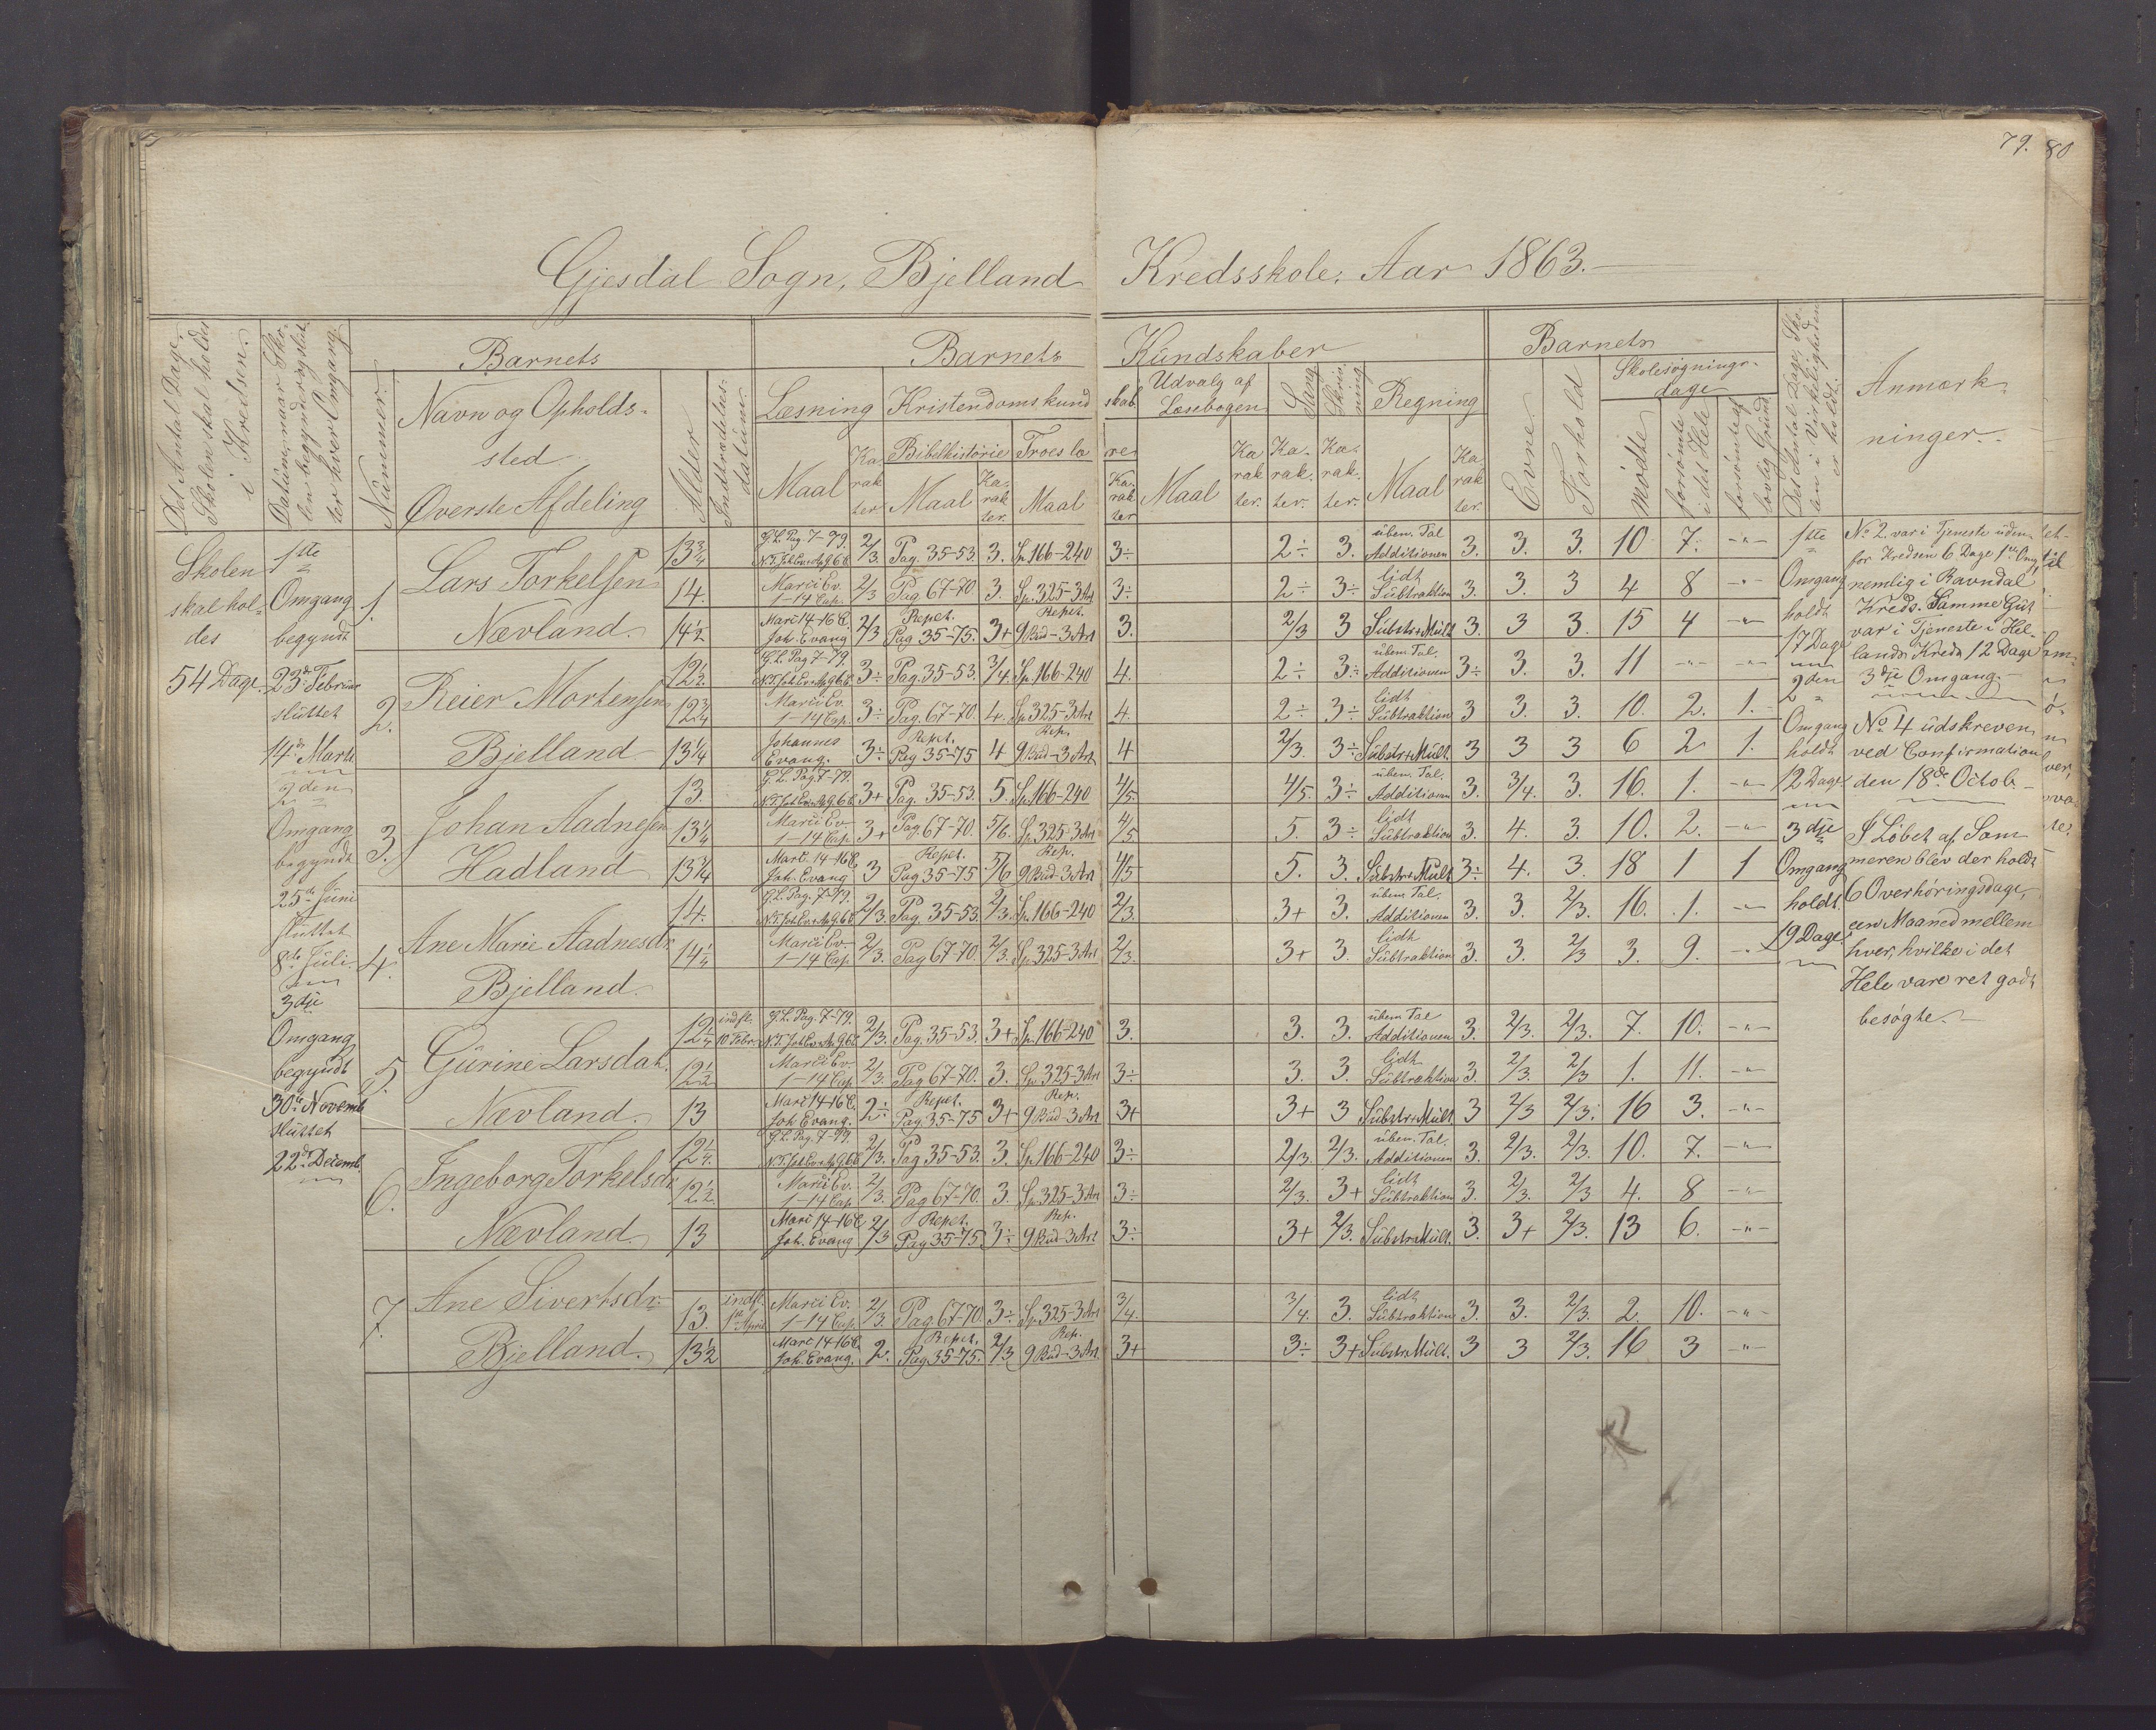 79. 80
Gjesdal Sogn, Bjelland Kredsskole: Aar 1863.
Det Antal Dage, Skolen skal holdes i Kredsen.
Datum, naar Skolen begynder og sluttes hver Omgang
Barnets
Nummer.
Navn og Opholdssted
Øverste Afdeling
Alder
Indtrædelsesdatum
Barnets Kundskaber
Læsning
Maal
Karakter
Kristendomskundskab.
Bibelhistorie
Maal
Karakter.
Troeslære
Maal
Karakter
Udvalg af Læsebogen
Maal
Karakter.
Sang
Karakter.
Skrivning
Karakter.
Regning
Maal
Karakter.
Barnets
Evne
Forhold
Skolesøgningsdage
mødte
forsømte i det Hele
forsømte af lovlig Grund
Det Antal Dage, Skolen i Virkeligheden er holdt.
Anmærkninger.
Skolen
skal hol=
des
54 Dage.
1ste
Omgang
begyndt
23de Februar
sluttet
14de Marts
2den
Omgang
begyndt
25de Juni
sluttet
8de Juli
3die
Omgang
begyndt
30te Novemb
sluttet
22de Decemb
1. Lars Torkelsen
Nævland.
13 3/4 G.L. Pag. 7-79. 2/3. Pag. 35-53. 3. Sp. 166-240 3÷ 2÷ 3. uben. Tal Additionen 3. 3. 3. 10 7. -"-
14. Marci Ev. 1-14 Cap. 2/3 Pag 67-70 3. Sp. 325-3 Art 3÷ 2÷ 3÷ lidt Subtraktion 3. 3. 3 4 8 -"-
14 1/2 Marc 14-16 C. Joh. Evang 2/3 Repet. Pag 35-75. 3+ Repet. 9 Bud-3 Art 3. 2/3 3 Substr+Mult 3. 3 3. 15 4 -"-
2. Reier Mortensen
Bjelland
12 1/2 G.L. Pag 7-79. 3÷ Pag. 35-53. 3/4. Sp. 166-240 4. 2÷ 3÷ uben. Tal. Additionen 3÷ 3. 3. 11 -"- -"-
12 3/4 Marci Ev. 1-14 Cap. 3÷ Pag. 67-70. 4. Sp. 325-3 Art 4. 2÷ 3÷ lidt Subtraktion 3 3. 3. 10. 2. 1.
13 1/4 Johannes Evang. 3÷ Repet. Pag 35-75 4 Rep. 9 Bud-3 Art 4 2/3. 3÷ Substr+Mult. 3 3 3 6 2 1.
3. Johan Aadnesen
Hadland
13. G.L. Pag. 7-79. 3+ Pag. 35-53. 5. Sp. 166-240 4/5. 4/5. 3÷ uben. Tal. Additionen 3. 3/4. 3. 16. 1. -"-
13 1/4 Marci Ev. 1-14 Cap. 3+ Pag. 67-70. 5/6. Sp. 325-3 Art 4/5 5. 3÷ lidt Subtraktion 3. 4. 3. 10. 2. -"-
13 1/4 Marc. 14-16 C. Joh. Evang 3 Repet. Pag 35-75 5/6 Rep. 9 Bud-3 Art 4/5 5. 3. Substr+Mult 3÷ 4. 3. 18 1 1
4. Ane Marie Aadnesdr.
Bjelland.
14. G.L. Pag. 7-79. 2/3. Pag. 35-53. 2/3. Sp. 166-240 2/3. 3+ 3. uben. Tal. Additionen 3. 3. 2/3. 16. 1. -"-
14 1/4 Marci Ev. 1-14 Cap. 2/3. Pag 67-70. 2/3. Sp. 325-3 Art 2/3. 3+ 3. lidt Subtraktion 3. 3. 2/3 3. 9. -"-
5. Gurine Larsdat.
Nævland.
12 1/4 indfl. 10 Febr. G.L. Pag. 7-79. 2/3. Pag. 35-53. 3+ Sp. 166-240 3. 3. 3. uben Tal Additionen 3. 2/3. 2/3. 7. 10. -"-
12 1/2 Marci Ev. 1-14 Cap 2/3. Pag 67-70. 3. Sp. 325-3 Art 3÷ 3. 3. lidt Subtraktion 3. 2/3. 2/3 1. 11. -"-
13 Marc 14-16 C. Joh Evang. 2÷ Repet. Pag. 35-75 3+ Rep. 9 Bud-3 Art 3+ 3+ 3 Substr+Mult. 3 2/3 2/3. 16 3. -"-
6. Ingeborg Torkelsdr
Nævland.
12 1/4. G.L. Pag. 7-79. 2/3. Pag 35-53. 3. Sp. 166-240 3÷ 2/3. 2/3. uben. Tal. Additionen 3. 2/3. 2/3. 10. 7. -"-
12 1/2. Marci Ev. 1-14 Cap. 2/3. Pag 67-70. 3. Sp. 325-3 Art 3÷ 2/3. 3+ lidt Subtraktion 3. 2/3. 2/3 4. 8 -"-
13 Marc 14-16 C Joh. Evang 2/3 Repet. Pag 35-75 3÷ Rep. 9 Bud-3 Art 3÷ 3+ 2/3. Substr+Mult. 3. 3+ 2/3. 13 6. -"-
7. Ane Sivertsdr.
Bjelland.
13. indfl. 1ste April Marci Ev. 1-14 Cap. 2/3. Pag. 67-70. 3÷ Sp. 325-3 Art 3/4. 3/4. 3. lidt Subtraktion 3. 3. 2/3. 2. 10. -"-
13 1/2 Marc 14-16 C. Joh. Evang. 2. Repet. Pag. 35-75. 2/3 Rep. 9 Bud-3 Art 3+ 3÷ 3+ Substr+Mult. 3 3 2/3. 16 3 -"-
1ste
Omgang
holdt
17 Dage
2den
Omgang
holdt
12 Dage
3die
Omgang
holdt.
19 Dage.
No 2. var i Tjeneste uden=
for Kredsen 6 Dage 1ste Omg,
nemlig i Ravndal
Kreds. Samme Gut
var i Tjeneste i Hel=
lands Kreds 12 Dage
3die Omgang.
No 4 udskreven
ved Confirmation
den 18de Octob.
I Løbet af Som
meren blev der holdt
6 Overhøringsdage,
een Maaned mellem
hver, hvilke i det
Hele vare ret godt
besøgte.